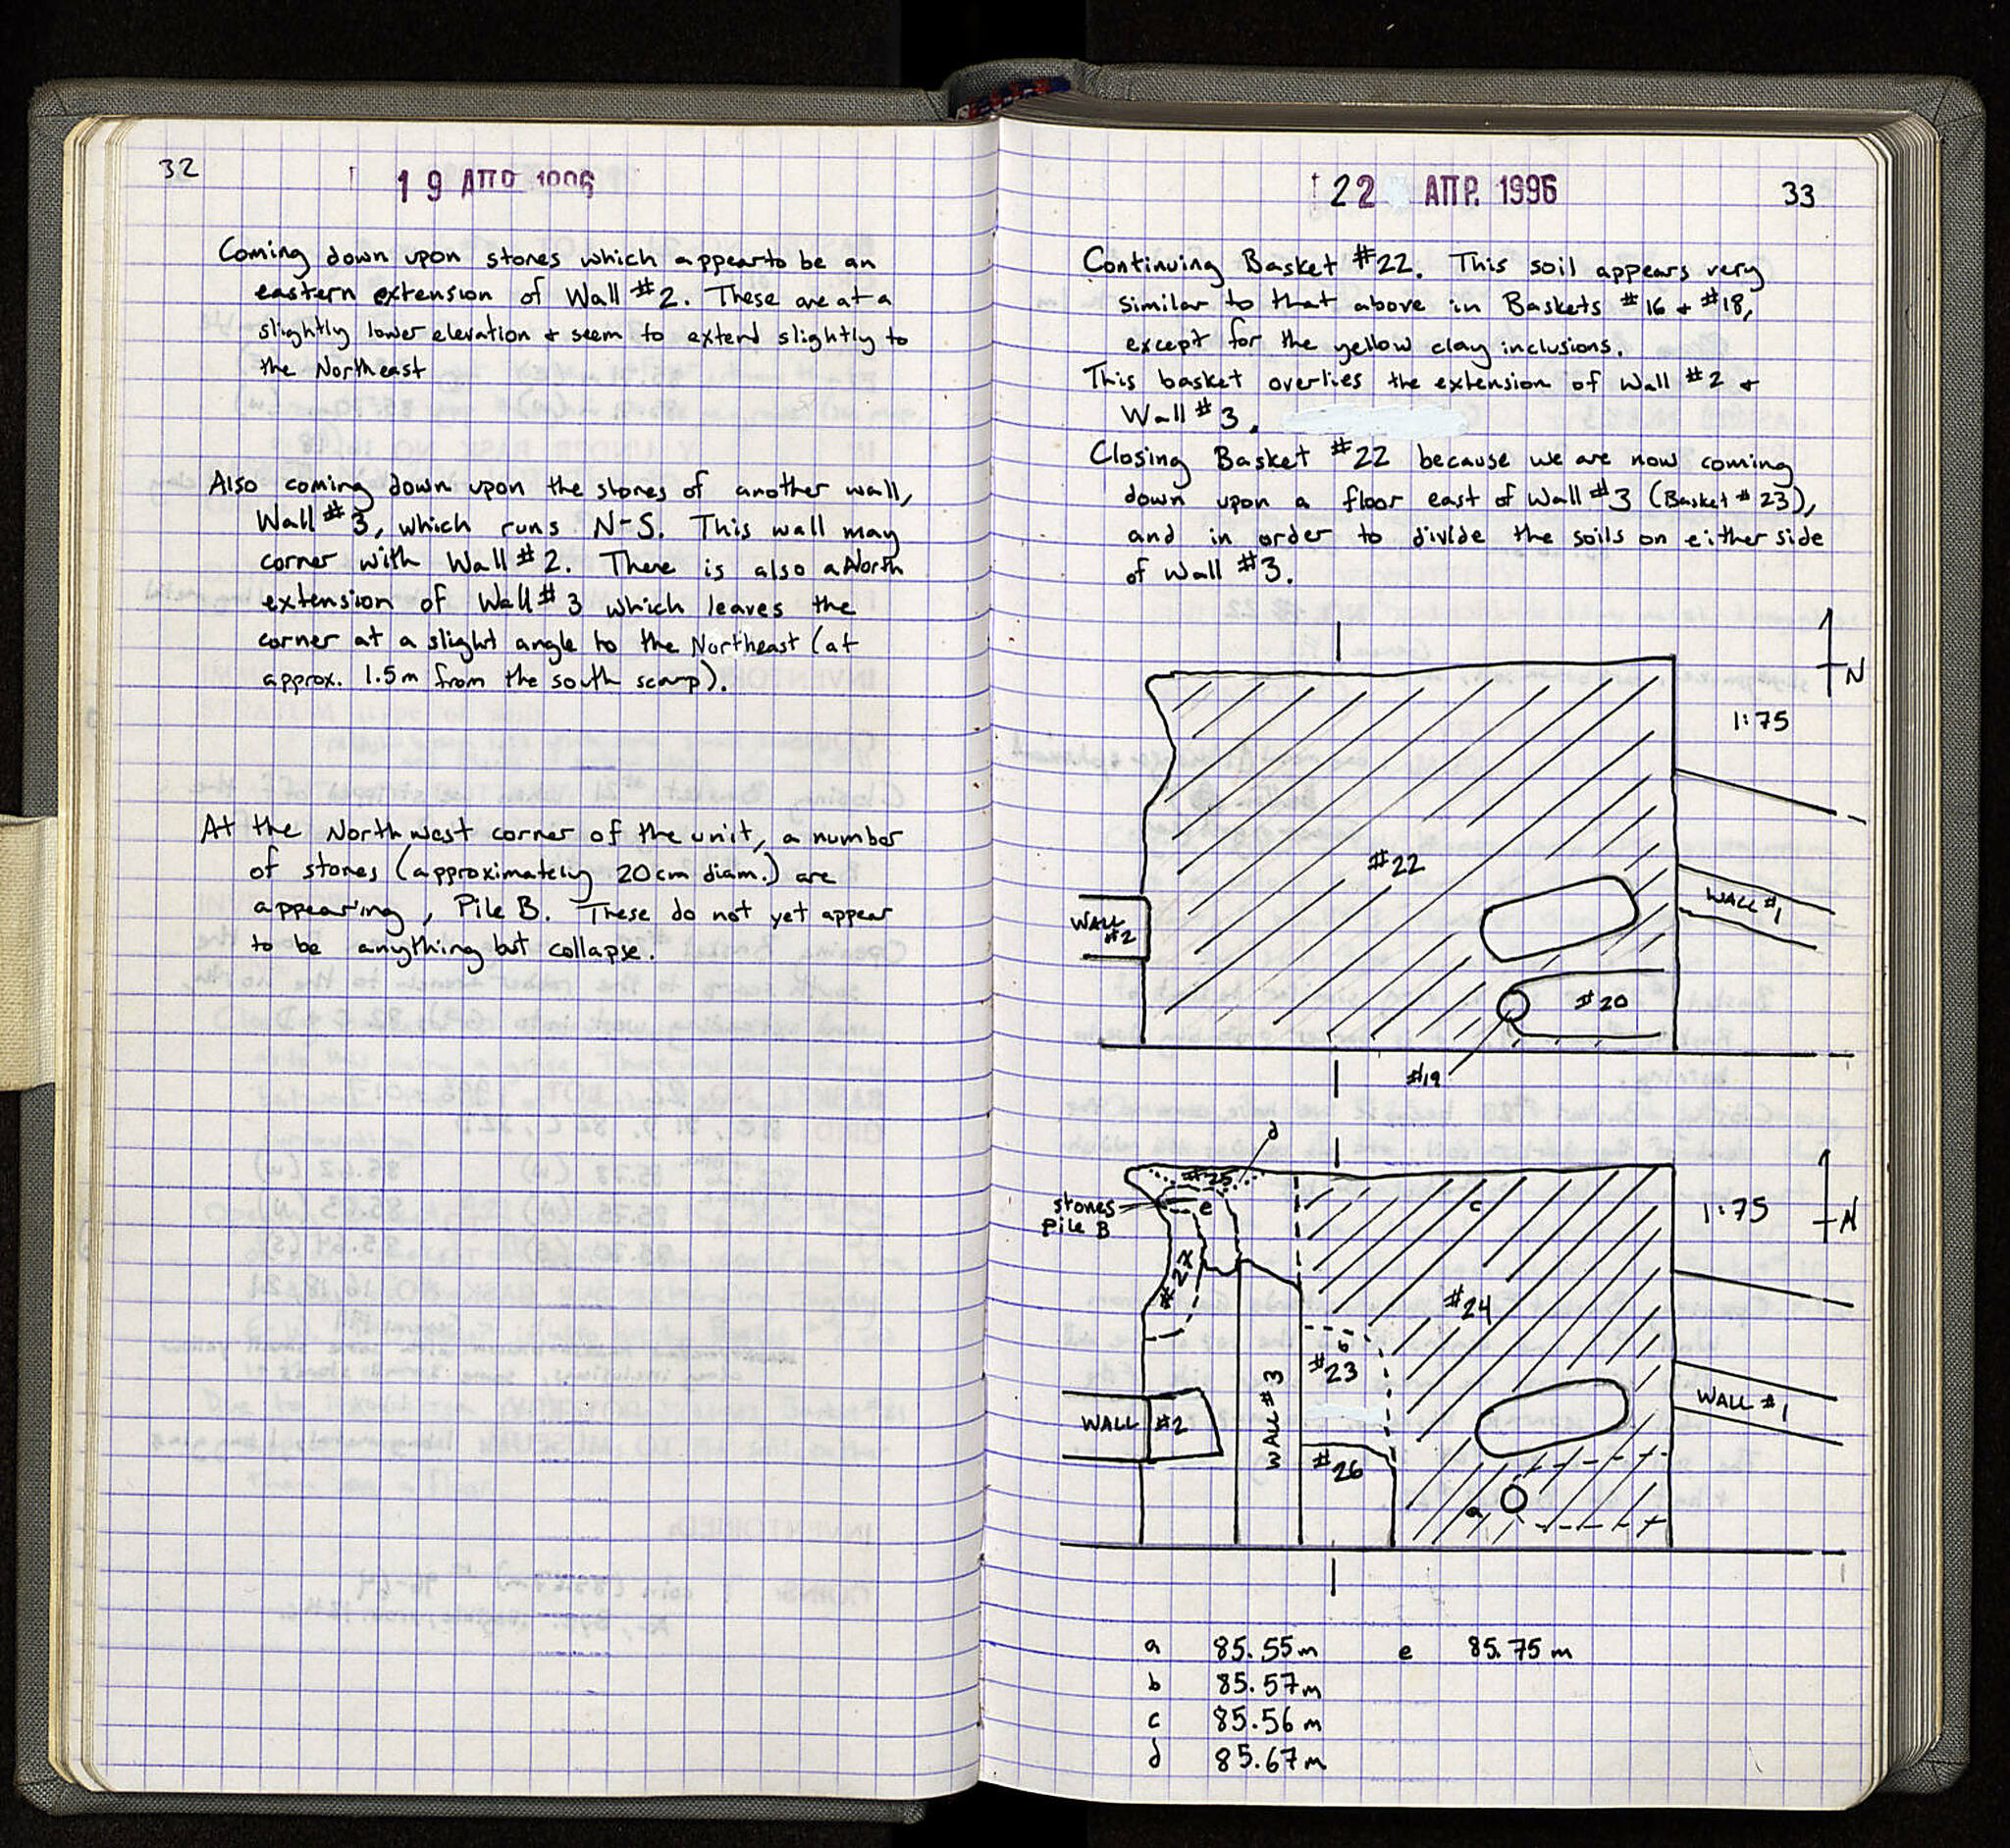 32
19 ΑΠΡ 1996
Coming down upon stones which appear to be an
eastern extension of Wall #2. These are at a
slightly lower elevation + seem to extend slightly to
the Northeast
Also coming down upon the stones of another wall,
Wall #3, which runs N-S. This wall may
corner with Wall #2. There is also a North
extension of Wall #3 which leaves the
corner at a slight angle to the Northeast (at
approx. 1.5m from the south scarp).
At the Northwest corner of the unit, a number
of stones (approximately 20cm diam.) are
appearing, Pile B. These do not yet appear
to be anything but collapse.
22 ΑΠΡ. 1996
33
Continuing Basket #22. This soil appears very
similar to that above in Baskets #16 + #18,
except for the yellow clay inclusions.
This basket overlies the extension of Wall #2 +
Wall #3.
Closing Basket #22 because we are now coming
down upon a floor east of Wall #3 (Basket #23),
and in order to divide the soils on either side
of Wall #3.
N
1:75
#22
WALL #1
WALL
#2
#20
#19
d
#25
stones
Pile B
e
c
1:75
N
#27
#24
b
#23
WALL #3
WALL #2
WALL #1
#26
a
a 85.55m e 85.75m
b 85.57m
c 85.56m
d 85.67m